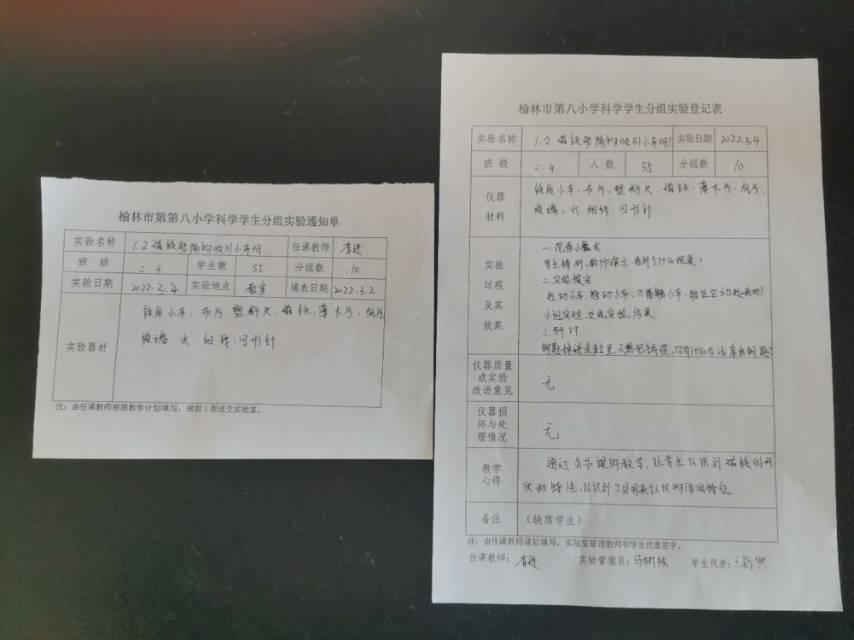 榆林市第第八小学科学学生分组实验通知单
实验名称 1.2 磁铁能隔物吸引小车吗 任课教师
班 级 2.4 学生数 55 分组数 10
实验日期 2022.3.4 实验地点 教室 填表日期 2022.3.2
实验器材
铁质小车、布片、塑料尺、磁铁、薄木片、纸片
玻璃、水、细线、回形针
注:由任课教师根据教学计划填写,提前1周送交实验室。
榆林市第八小学科学学生分组实验登记表
实验名称 1.2 磁铁能隔物吸引小车吗? 实验日期 2022.3.4
班 级 2.4 人 数 55 分组数 10
仪器
材料
铁质小车、布片、塑料尺、磁铁、薄木片、纸片、
玻璃、水、细线、回形针
实验
过程
及其
效果
一、
学生猜测,教师演示,看到了什么现象?
二、实验探究
拉动小车,推动小车,不接触小车,能让它动起来吗?
小组实验,交流实验结果
三、研讨
仪器质量
或实验
改进意见
无
仪器损
坏与处
理情况
无
教学
心得
通过本节课的教学,让学生认识到磁铁
备注 (缺席学生)
注:由任课教师课后填写,实验室管理教师和学生代表签字。
任课教师: 实验管理员: 学生代表: